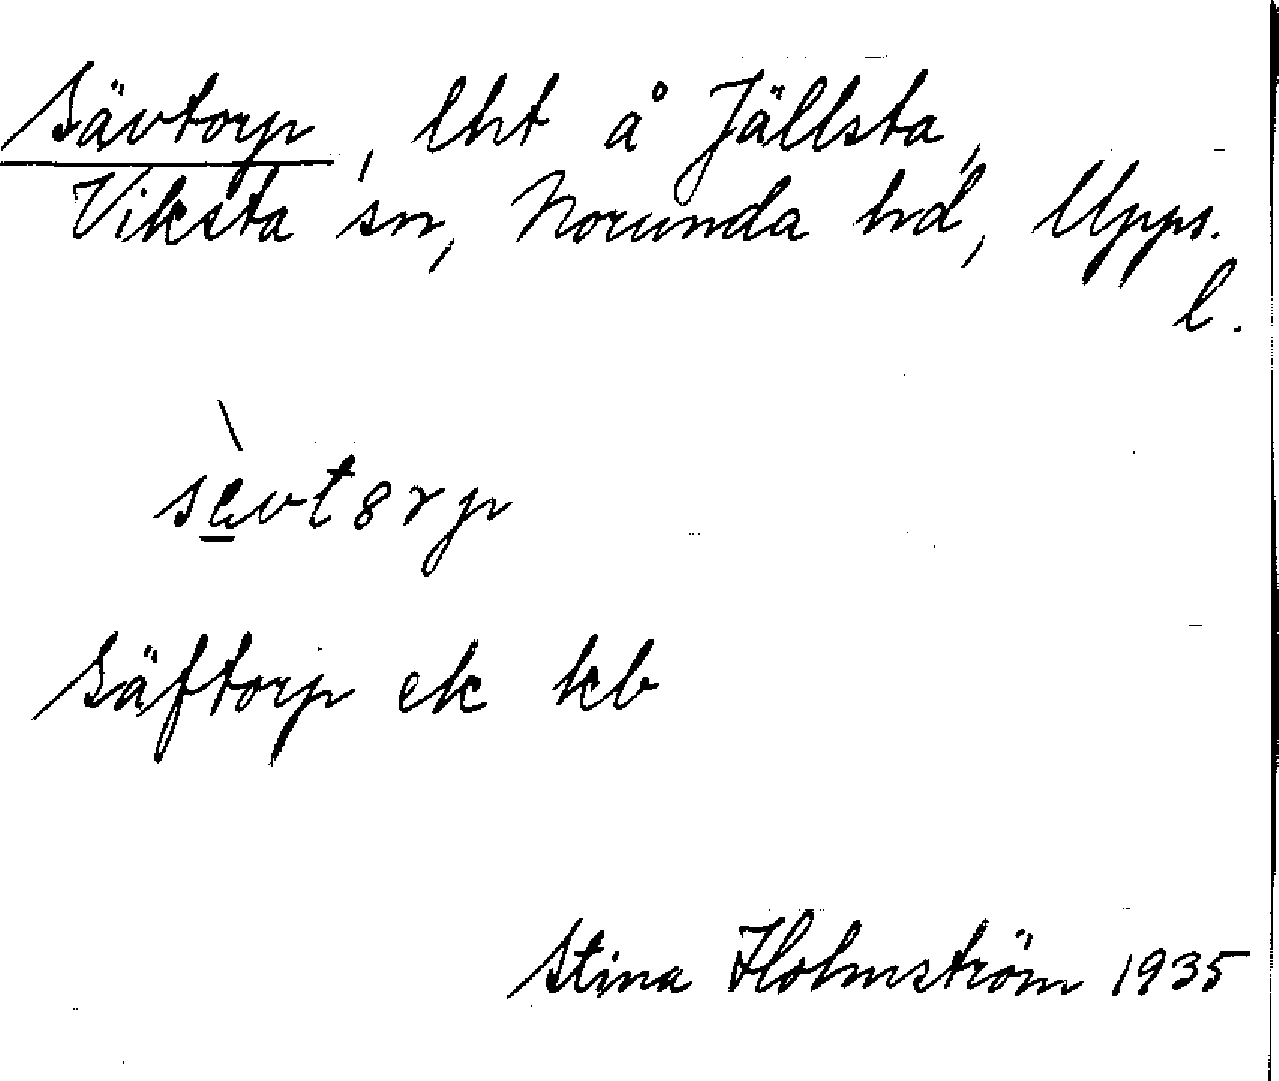 Sävtorp, lht å Jällsta,
Viksta sn, Norunda hd, Upps.
l.
sὲvt8rp
Säftorp ek kb
Stina Holmström 1935